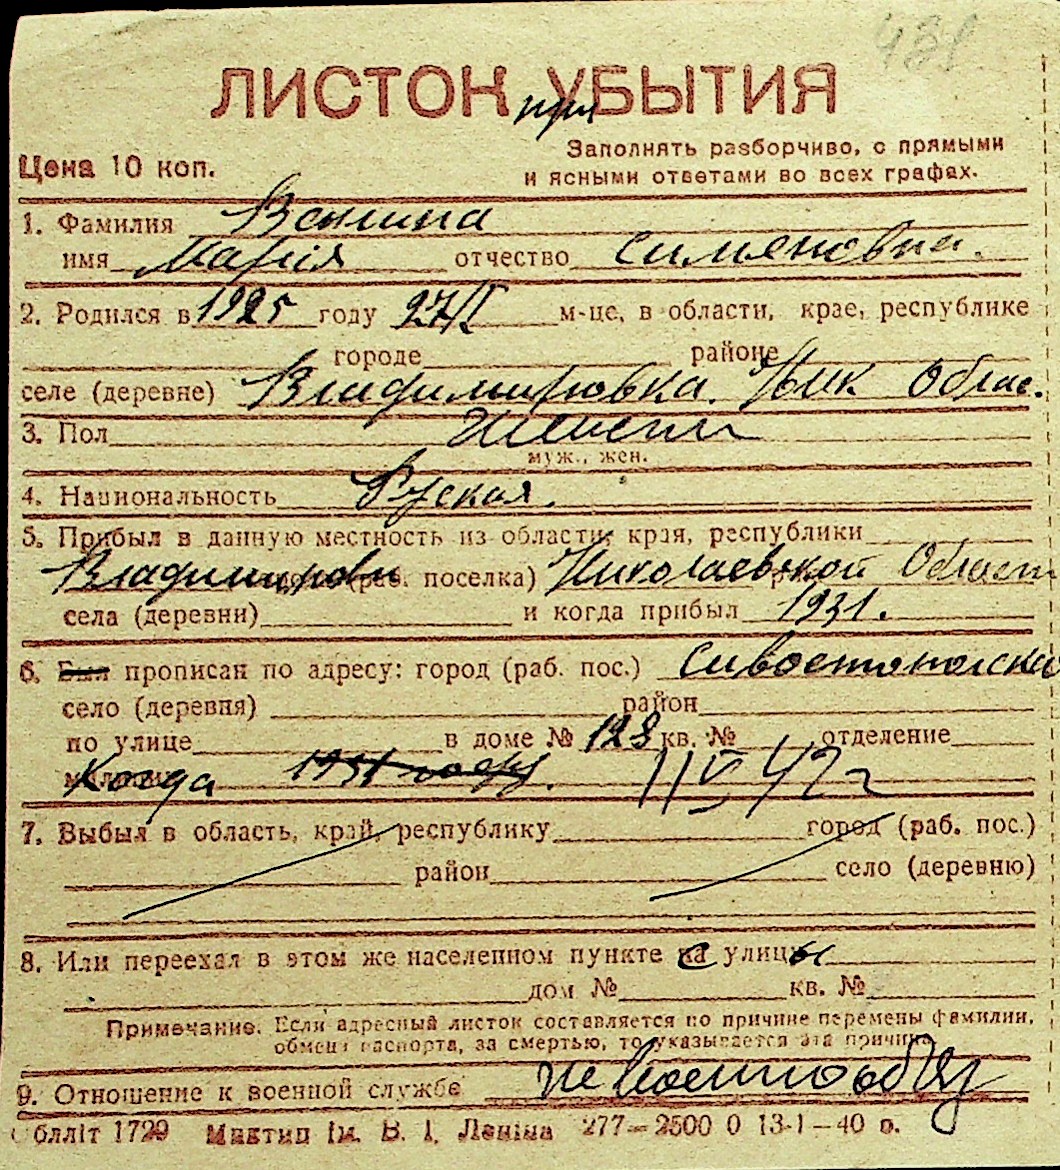 431
ЛИСТОК УБЫТИЯ
при
Цена 10 коп.
Заполнять разборчиво, с прямыми
и ясными ответами во всех графах.
1. Фамилия
имя Марія отчество Симьеновна.
2. Родился в 1925 году 27/I м-це, в области, крае, республике
городе районе
селе (деревне) Владимировка. Ник Облас.
3. Пол Женский
муж., жен.
4. Национальность Руская.
5. Прибыл в данную местность из области, края, республики
Владимировки поселка) Николаевской Област
села (деревни) и когда прибыл 1931.
6. Был прописан по адресу: город (раб. пос.) Сивостопольская
село (деревня) район
по улице в доме № 128 кв. № отделение
милиции Когда 1931 году. 11 V 42 г
7. Выбыл в область, край, республику город (раб. пос.)
район село (деревню)
8. Или переехал в этом же населенном пункте с улицы
дом № кв. №
Примечание. Если адресный листок составляется по причине перемены фамилии,
обмена паспорта, за смертью, то указывается эта причина
9. Отношение к военной службе не военнообяз
Облліт 1729 Миктип Ім. В. І. Леніна 277—2500 0 13-1—40 р.